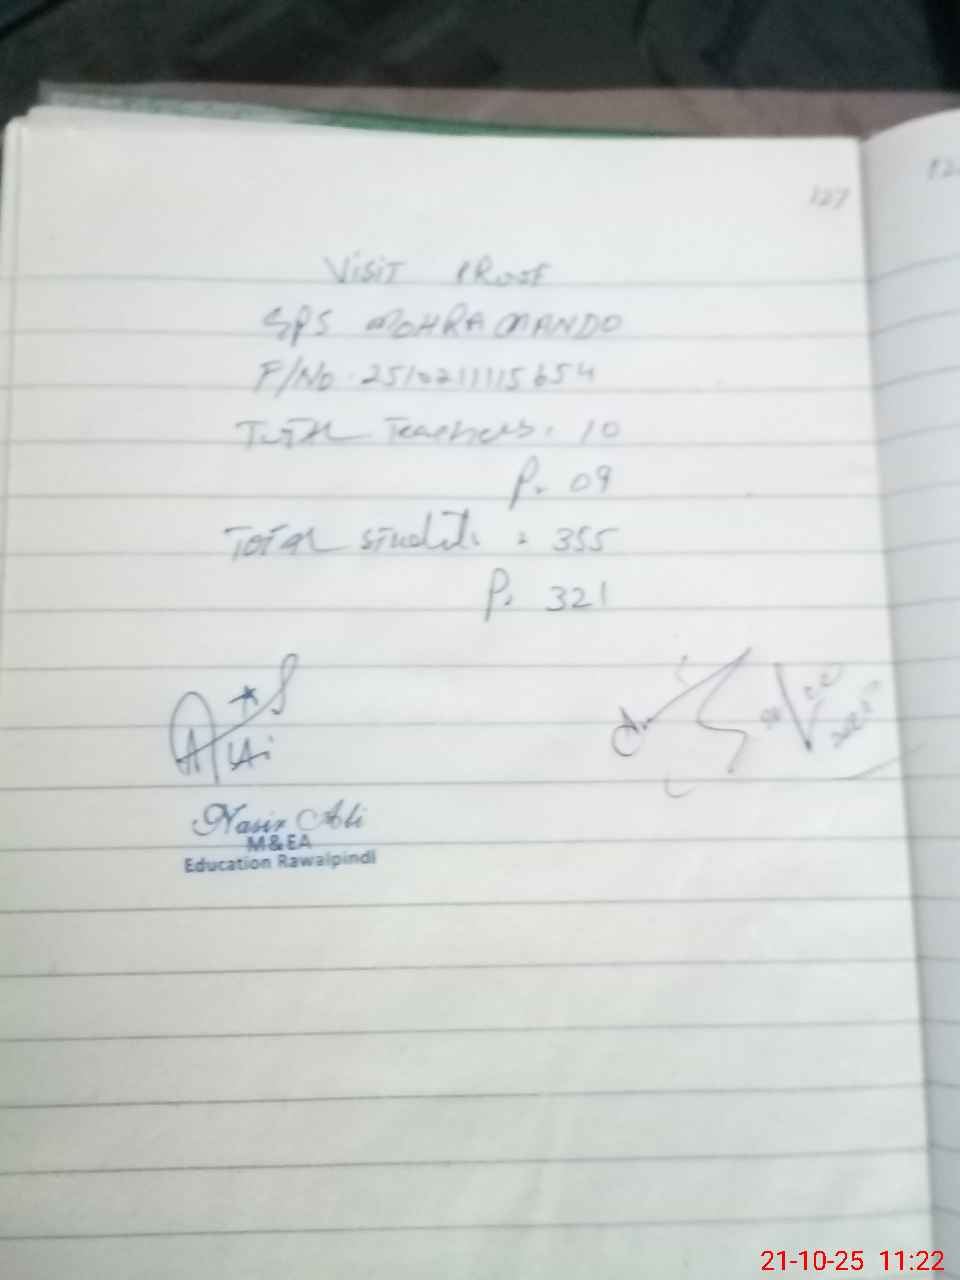 127
VISIT PROOF
GPS MOHRA MANDO
F/No. 251021115654
Total Teachers. 10
P. 09
Total students. 355
P. 321
Nasir Ali
M&EA
Education Rawalpindi
21-10-25 11:22